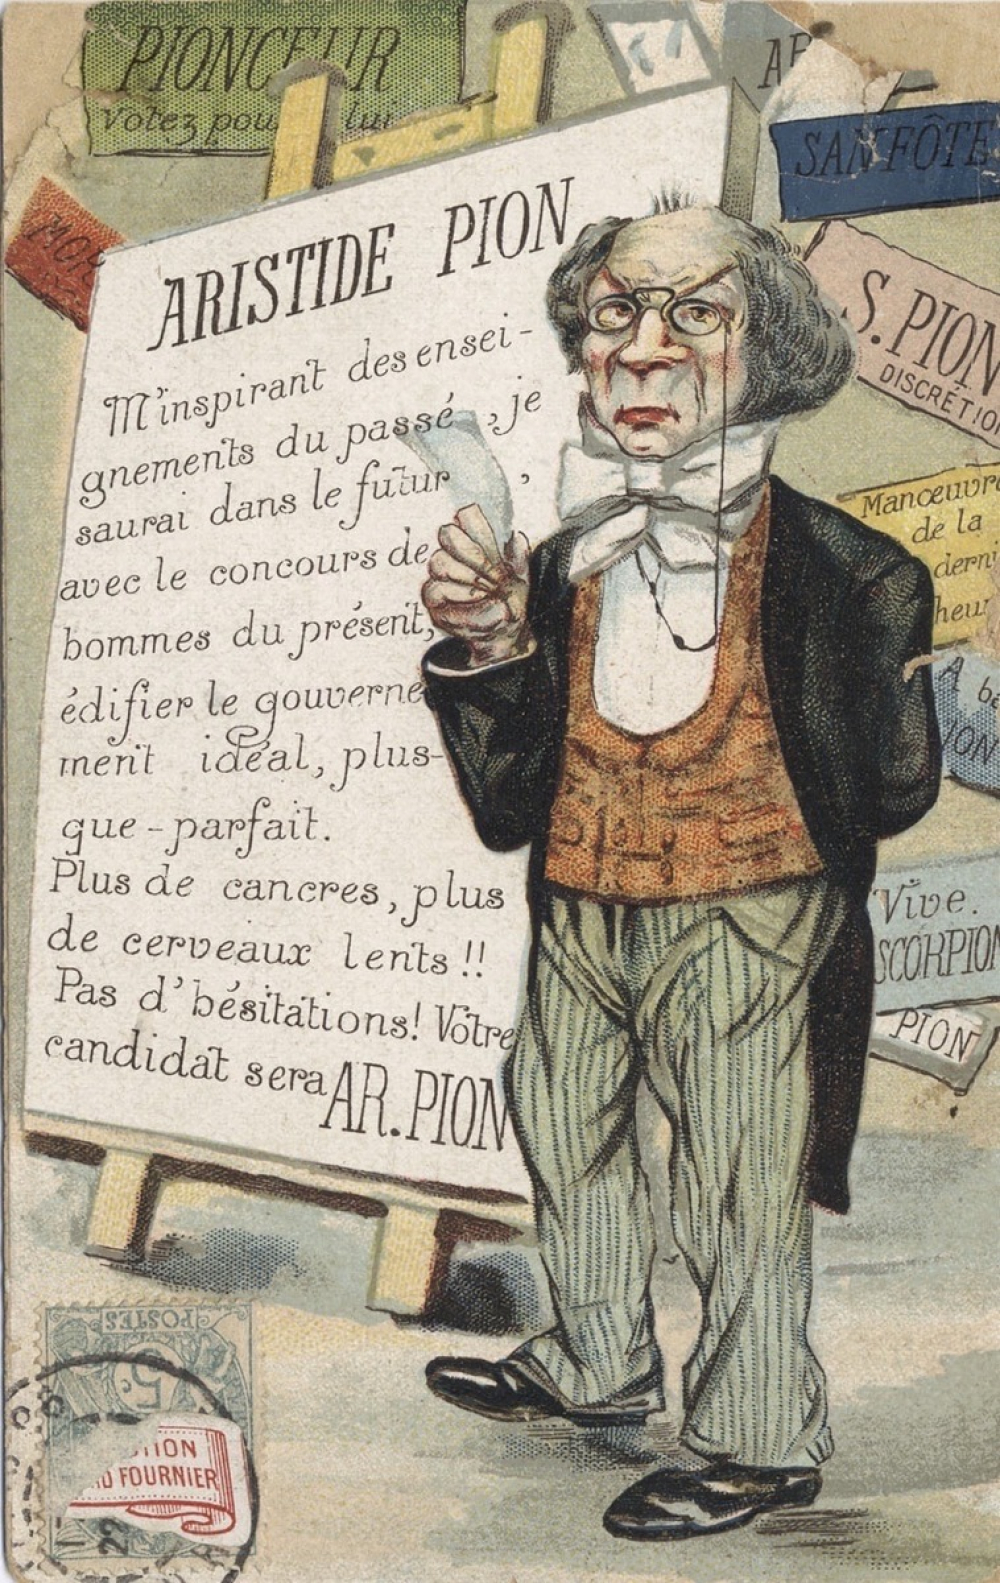 PIONCEUR
Votez pour lui
AR
SANFÔTE
MOR
S. PION
DISCRÉTION
ARISTIDE PION
M'inspirant des ensei-
gnements du passé, je
saurai dans le futur,
avec le concours de
hommes du présent,
édifier le gouverne
ment idéal, plus-
que-parfait.
Plus de cancres, plus
de cerveaux lents!!
Pas d'hésitations! Votre
candidat sera AR. PION
Manœuvre
de la
derni
heur
A ba
ION
Vive
SCORPION
PION
POSTES
5c
TION
FOURNIER